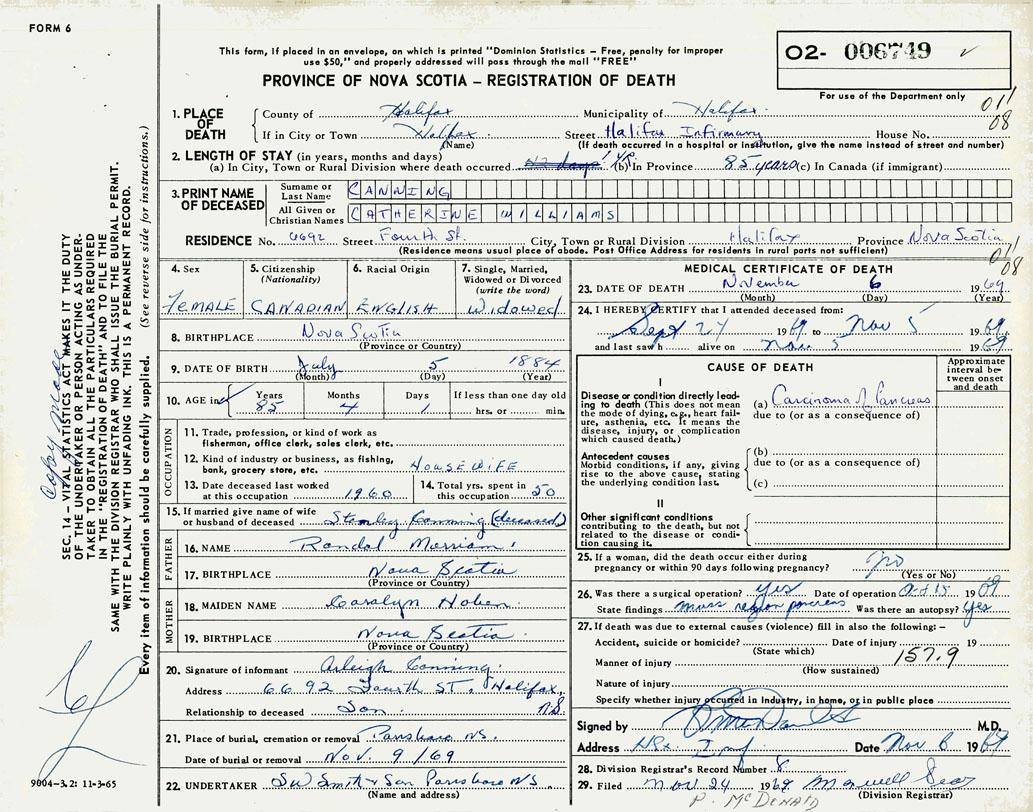 FORM 6
This form, if placed in an envelope, on which is printed "Dominion Statistics – Free, penalty for improper
use $50," and properly addressed will pass through the mail "FREE"
O2- 006749 ✓
PROVINCE OF NOVA SCOTIA – REGISTRATION OF DEATH
For use of the Department only
011
08
1. PLACE OF DEATH
County of Halifax Municipality of Halifax
If in City or Town Halifax Street Halifax Infirmary House No.
(Name) (If death occurred in a hospital or institution, give the name instead of street and number)
2. LENGTH OF STAY (in years, months and days)
(a) In City, Town or Rural Division where death occurred (b) In Province 85 years (c) In Canada (if immigrant)
3. PRINT NAME OF DECEASED
Surname or Last Name CANNING
All Given or Christian Names CATHERINE WILLIAMS
RESIDENCE No. 6692 Street Fourth St. City, Town or Rural Division Halifax Province Nova Scotia
(Residence means usual place of abode. Post Office Address for residents in rural parts not sufficient)
011
08
4. Sex FEMALE
5. Citizenship (Nationality) CANADIAN
6. Racial Origin ENGLISH
7. Single, Married, Widowed or Divorced (write the word) Widowed
8. BIRTHPLACE Nova Scotia
(Province or Country)
9. DATE OF BIRTH July 5 1884
(Month) (Day) (Year)
10. AGE in Years 85 Months 4 Days 1 If less than one day old hrs. or min.
OCCUPATION
11. Trade, profession, or kind of work as
fisherman, office clerk, sales clerk, etc.
12. Kind of industry or business, as fishing,
bank, grocery store, etc. HOUSEWIFE
13. Date deceased last worked at this occupation 1960
14. Total yrs. spent in this occupation 50
15. If married give name of wife
or husband of deceased Stanley Canning (deceased)
FATHER
16. NAME Randal Merriam
17. BIRTHPLACE Nova Scotia
(Province or Country)
MOTHER
18. MAIDEN NAME
19. BIRTHPLACE Nova Scotia
(Province or Country)
20. Signature of informant Arleigh Canning
Address 6692 Fourth ST. Halifax,
Relationship to deceased Son N.S.
21. Place of burial, cremation or removal Parrsboro N.S.
Date of burial or removal Nov. 9/69
22. UNDERTAKER Smith & Son Parrsboro N S
(Name and address)
MEDICAL CERTIFICATE OF DEATH
23. DATE OF DEATH November 6 1969
(Month) (Day) (Year)
24. I HEREBY CERTIFY that I attended deceased from:
Sept 27 1969 to Nov 5 1969
and last saw h alive on Nov 5 1969
CAUSE OF DEATH
Approximate interval between onset and death
I
Disease or condition directly leading to death (This does not mean the mode of dying, e.g., heart failure, asthenia, etc. It means the disease, injury, or complication which caused death.)
(a) Carcinoma of Pancreas
due to (or as a consequence of)
Antecedent causes
Morbid conditions, if any, giving rise to the above cause, stating the underlying condition last.
(b)
due to (or as a consequence of)
(c)
II
Other significant conditions
contributing to the death, but not related to the disease or condition causing it.
25. If a woman, did the death occur either during
pregnancy or within 90 days following pregnancy? No
(Yes or No)
26. Was there a surgical operation? yes Date of operation Oct 15 1969
State findings mass region pancreas Was there an autopsy? Yes
27. If death was due to external causes (violence) fill in also the following: –
Accident, suicide or homicide? Date of injury 19
(State which)
Manner of injury 157.9
(How sustained)
Nature of injury
Specify whether injury occurred in industry, in home, or in public place
Signed by M.D.
Address Hfx. Inf Date Nov 6 1969
28. Division Registrar's Record Number 8
29. Filed Nov 24 1969 Maxwell
(Division Registrar)
P. McDENAID
SEC. 14 – VITAL STATISTICS ACT MAKES IT THE DUTY
OF THE UNDERTAKER OR PERSON ACTING AS UNDER-
TAKER TO OBTAIN ALL THE PARTICULARS REQUIRED
IN THE "REGISTRATION OF DEATH" AND TO FILE THE
SAME WITH THE DIVISION REGISTRAR WHO SHALL ISSUE THE BURIAL PERMIT.
WRITE PLAINLY WITH UNFADING INK. THIS IS A PERMANENT RECORD.
Every item of information should be carefully supplied. (See reverse side for instructions.)
Copy made
9004–3.2: 11-3-65